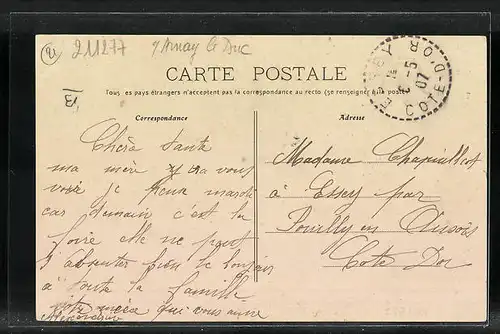 21
211277
Arnay le Duc
CARTE POSTALE
Tous les pays étrangers n'acceptent pas la correspondance au recto (se renseigner à la poste)
13
Correspondance
Adresse
ESSEY
5
07
COTE-D'OR
Chère tante
ma mère ira vous
voir je peux mardi
car demain c'est la
foire elle ne peut
s'absenter bien le bonjour
à toute la famille
votre nièce qui vous aime
Madame
à Essey par
Pouilly en Auxois
Côte D'or